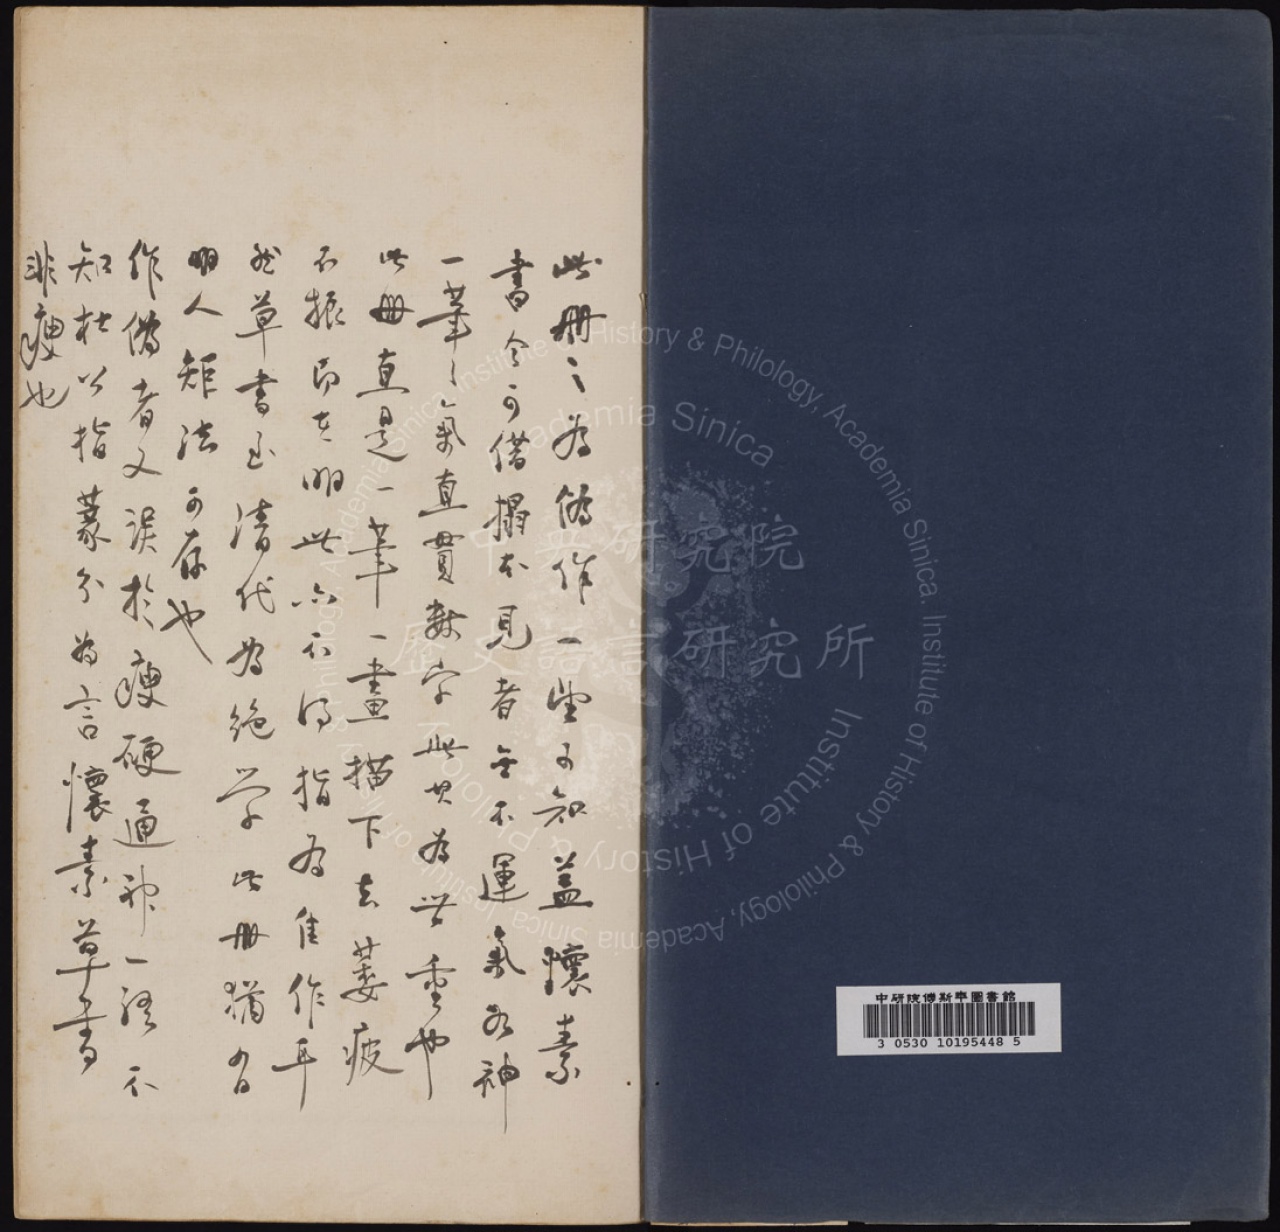 此冊之為偽作一望可知蓋懷素
書今可借搨本見者無不運氣如神
一筆之氣直貫數字此其為世重也
此冊直是一筆一畫描下去萎疲
不振即在明世亦不得指為佳作耳
然草書至清代為絕學此冊猶有
明人矩法可存也
作偽者又誤於瘦硬通神一語不
知杜公指篆分為言懷素草書
非瘦也
中研院傅斯年圖書館
3 0530 10195448 5
中央研究院
歷史語言研究所
Academia Sinica. Institute of History & Philology, Academia Sinica. Institute of History & Philology,